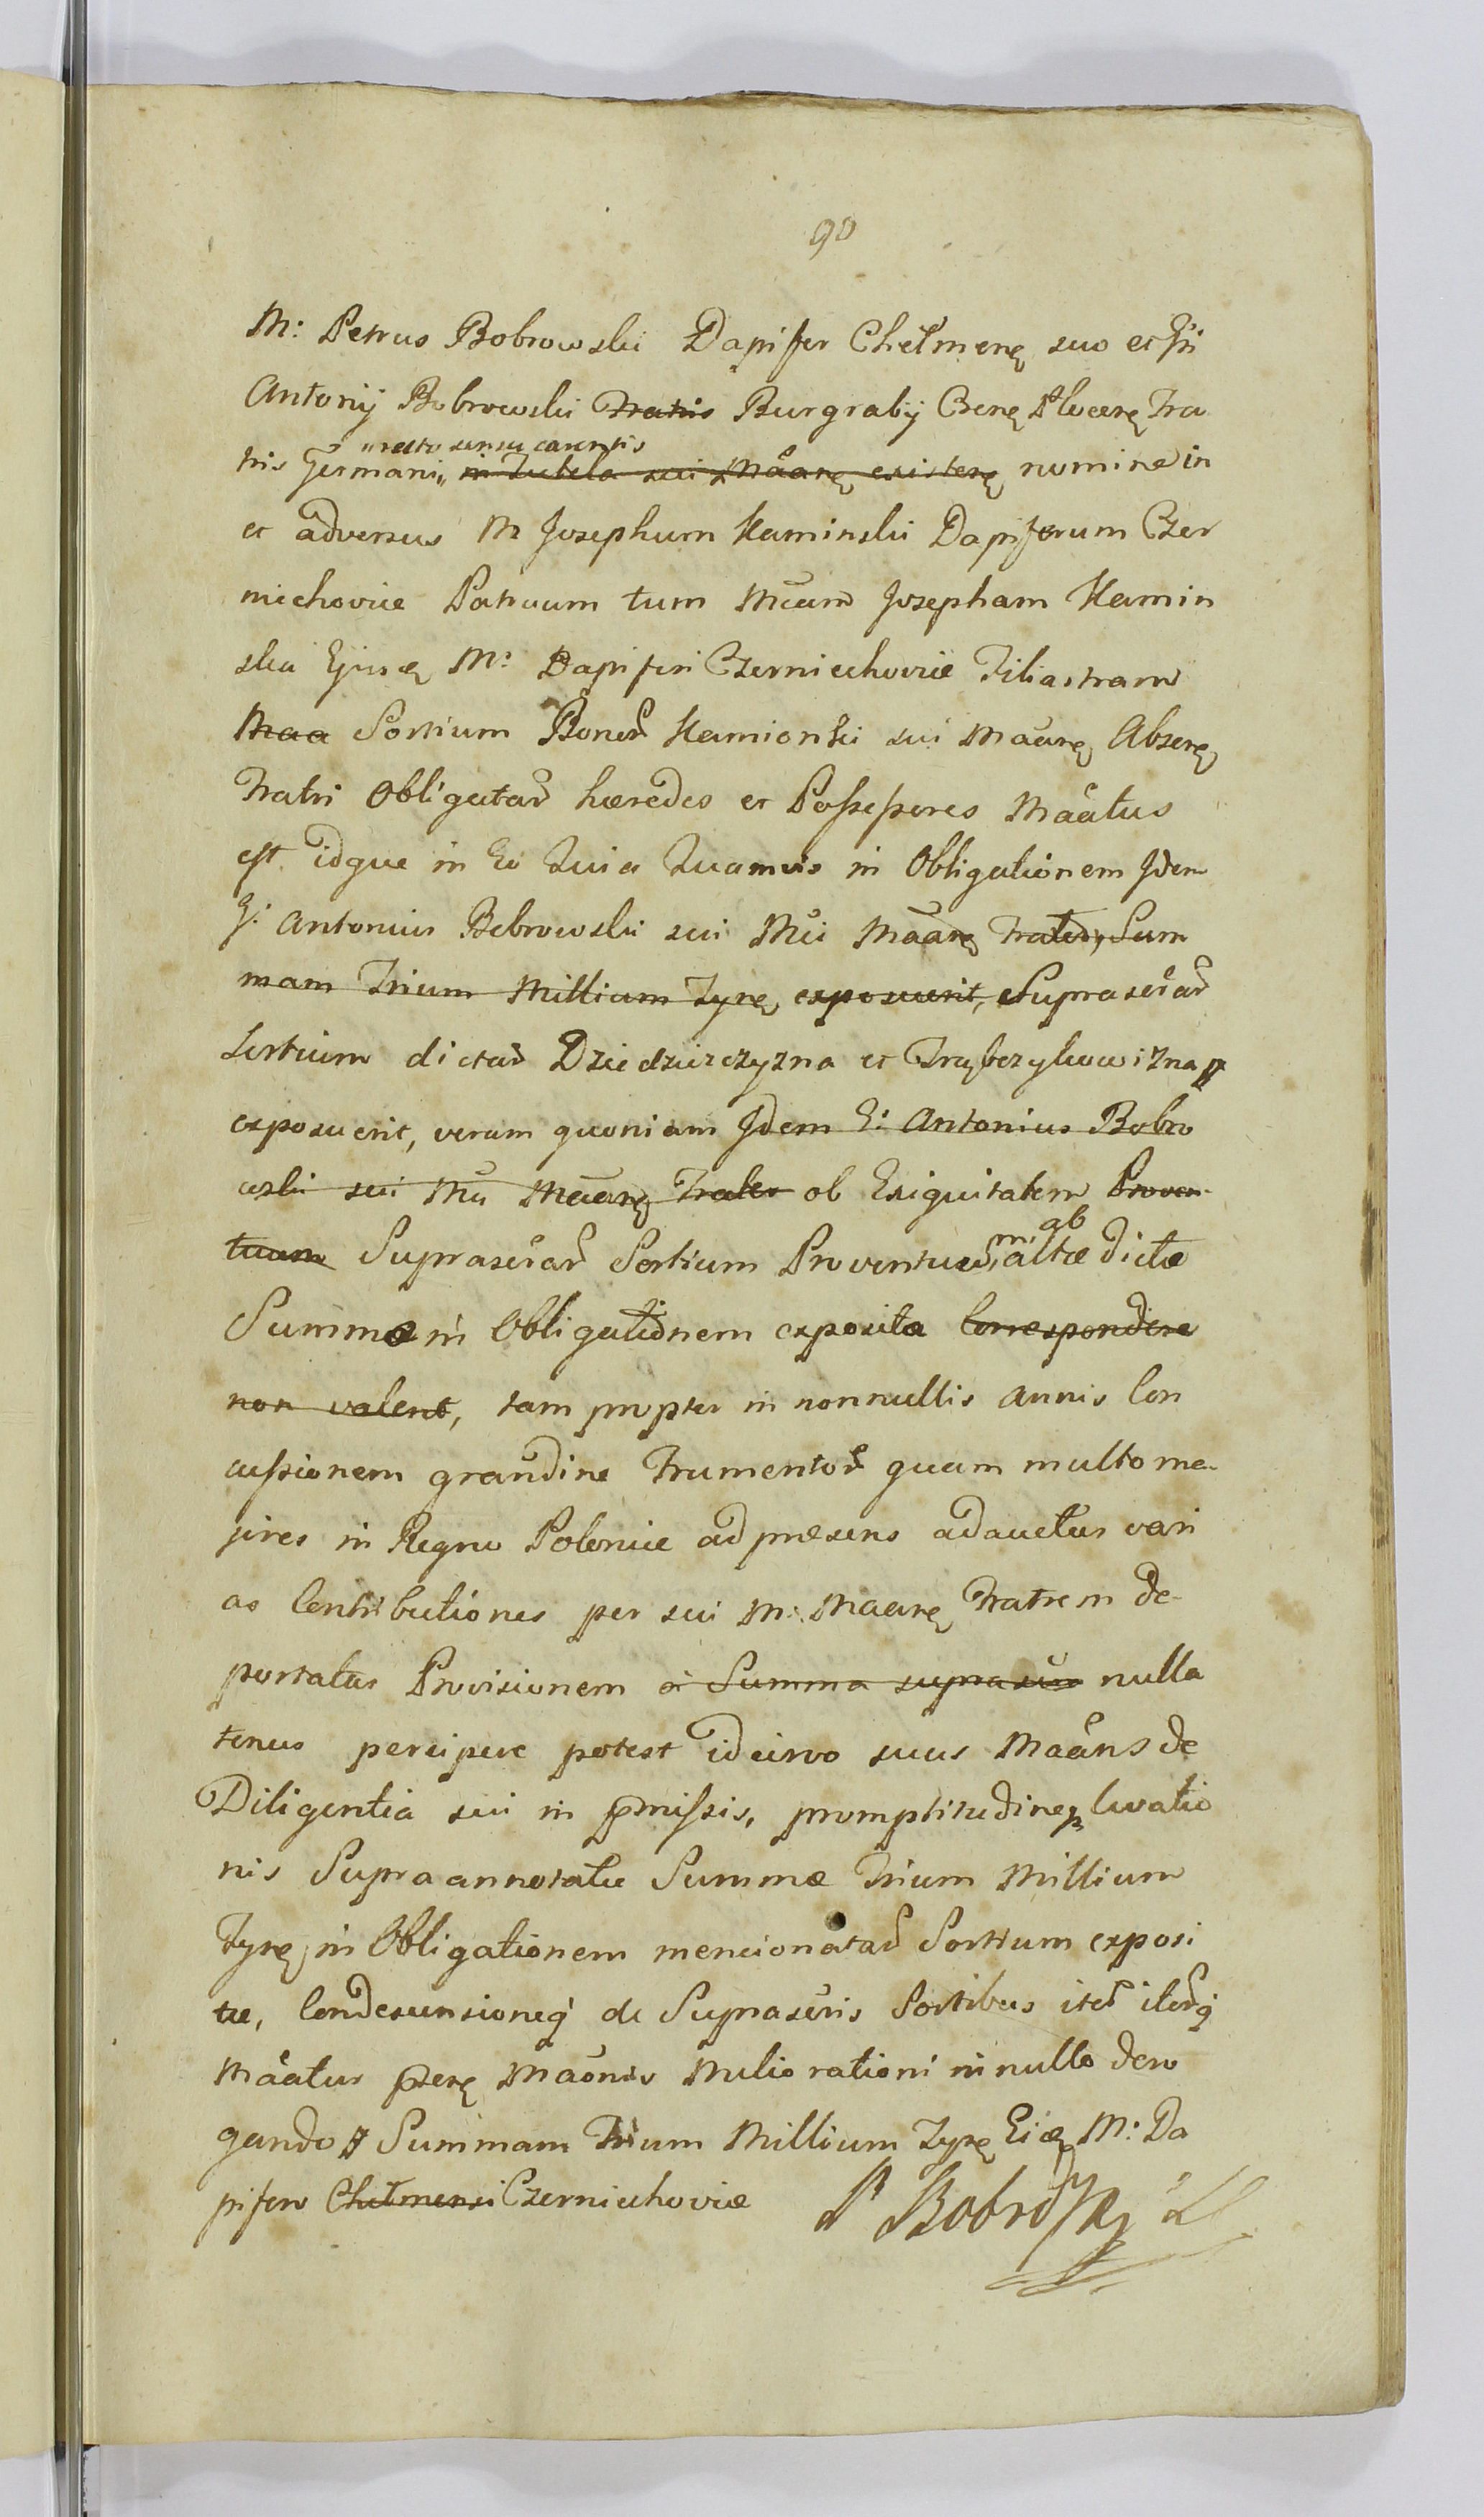 90
M: Petrus Bobrowski Dapifer Chełmenę suo et Gi
Antonij Bobrowski Fratris Burgrabij Csenę Fra
recto sensu carentis
tris Germani, in Tutela sui Maarę existenę nomine in
et adversus M Josephum Kaminski Dapiferum Czer
niechoviæ Patruum tum Mcam Josepham Kamin
ska Ejusę M: Dapiferi Czerniechoviæ Filiastram
Maa Sortium Bonor Kamionki sui Maarę Absenę
Fratri Obligatar hæredes et Possessores Maatus
est idque in Eo Quia Quamvis in Obligationem Idem
G: Antonius Bobrowski sui Mci Maarę Frater, Sum
mam Trium Millium Tynę exposuerit, Suprascrar
Sortium dictar Dziedziczyzna et
exposuerit, verum quoniam Idem G: Antonius Bobro
wski sui Mci Maarę Frater ob Exiguitatem Proven
ab
tuum Suprascrar Sortium Proventuum, altæ dictæ
Summæ in Obligationem exposita Correspondere
non valent, tam propter in nonnullis annis Con
cussionem grandine Frumentor quam multo ma-
jores in Regno Poloniæ ad præsens adauctas vari
as Contributiones per sui M: Maarę Fratrem de-
portatas Provisionem a Summa suprascra nulla
tenus percipere potest idcirco suus Maans de
Diligentia sui in pmissis, promptitudineq levatio
nis Supra annotatæ Summæ Trium Millium
Tynę in Obligationem mencionatar Sortium exposi
tæ, Condescensioneq de Suprascris Sortibus iter iterq
Maatur psenę Maonis Melio rationi in nullo dero
gando Summam Trium Millium Tynę Eidę M: Da
pifero Chełmensi Czerniechoviæ
P Bobrowski